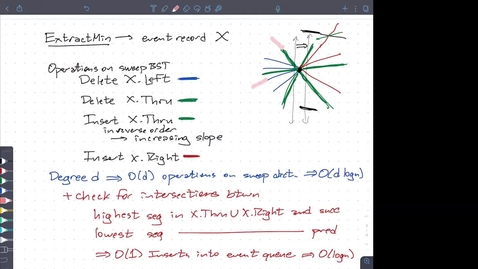 ExtractMin → event record X
Operations on sweep BST
Delete X.Left
Delete X.Thru
Insert X.Thru
in reverse order
→ increasing slope
Insert X.Right
Degree d ⇒ O(d) operations on sweep dict. ⇒ O(d log n)
+ check for intersections btwn
highest seg in X.Thru ∪ X.Right and succ
lowest seg ———————— pred
⇒ O(1) Inserts into event queue ⇒ O(log n)